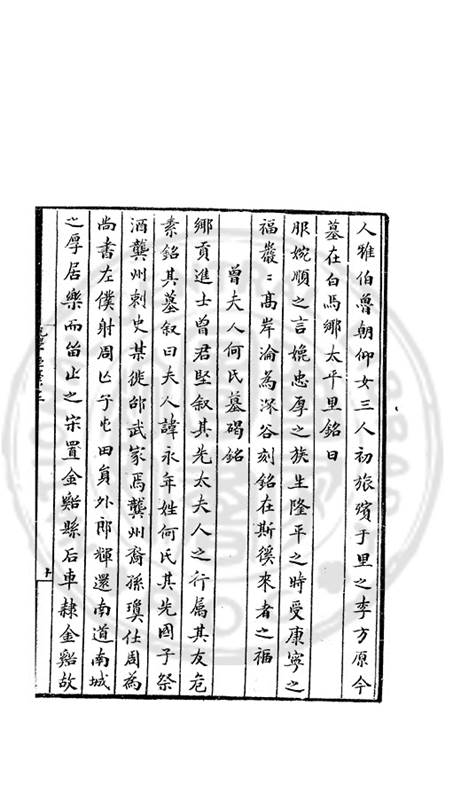 人雅伯魯朝仰女三人初旅殯于里之李方原今
墓在白馬鄉太平里銘曰
服婉順之言娩忠厚之族生隆平之時受康寧之
福巖〻高岸淪為深谷刻銘在斯徯來者之福
曾夫人何氏墓碣銘
鄉貢進士曾君堅叙其先太夫人之行属其友危
素銘其墓叙曰夫人諱永年姓何氏其先國子祭
酒龔州刺史某徙邵武家焉龔州裔孫瓊仕周為
尚書左僕射周亾子屯田員外郎輝還南道南城
之厚居樂而留止之宋置金谿縣后車隷金谿故